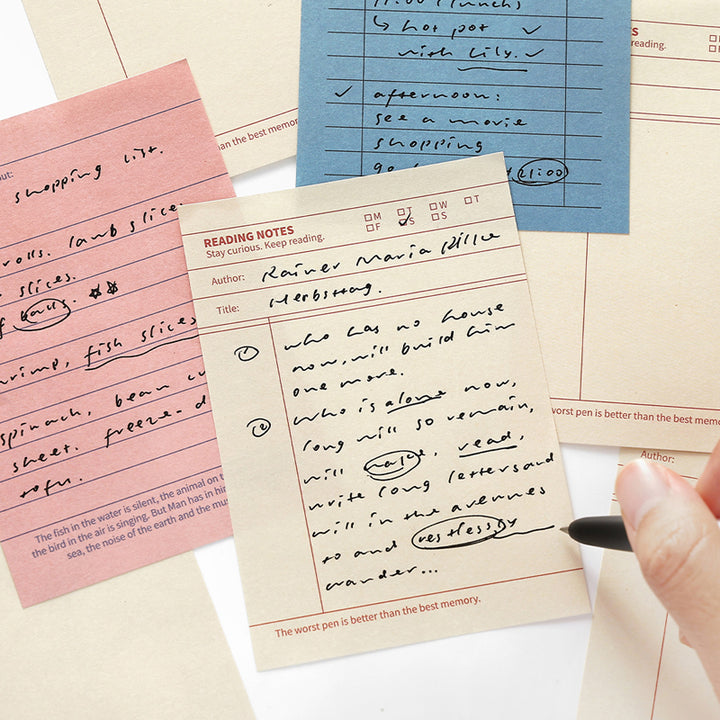 out:
shopping list.
rolls. lamb slices
slices.
balls.
shrimp, fish slices
spinach, bean
sheet. freeze-d
tofu.
The fish in the water is silent, the animal on t
the bird in the air is singing. But Man has in hi
sea, the noise of the earth and the mu
an the best memor
11:00 (lunch)
↳ hot pot ✓
with lily. ✓
✓ afternoon:
see a movie
shopping
21:00
READING NOTES
Stay curious. Keep reading.
M T W T
F S S
Author: Rainer Maria Rilke
Title: Herbsttag.
① who has no house
now, will build him
one more.
② who is alone now,
long will so remain,
will wake, read,
write long letters and
will in the avenues
to and restlessly
wander...
The worst pen is better than the best memory.
S
reading.
worst pen is better than the best memo
Author: